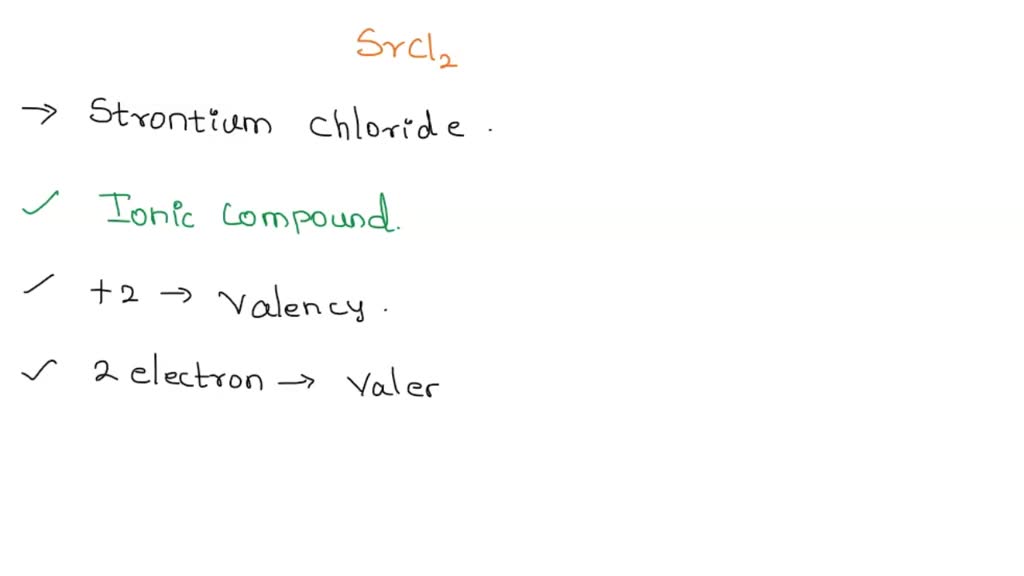 SrCl₂
→ Strontium chloride.
✓ Ionic compound.
✓ +2 → Valency.
✓ 2 electron → Valer